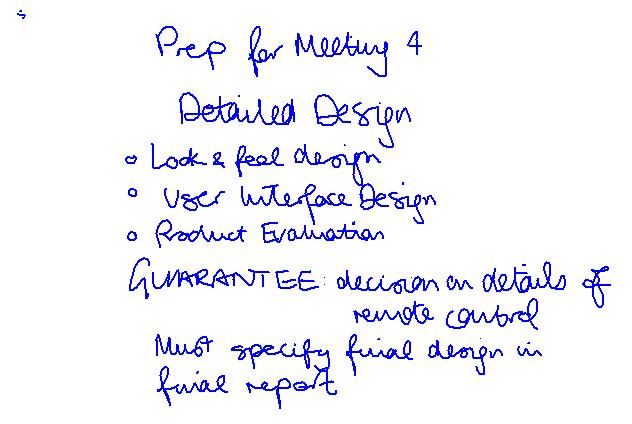 Prep for Meeting 4
Detailed Design
o Look & feel design
o User Interface Design
o Product Evaluation
GUARANTEE: decision on details of
remote control
Must specify final design in
final report